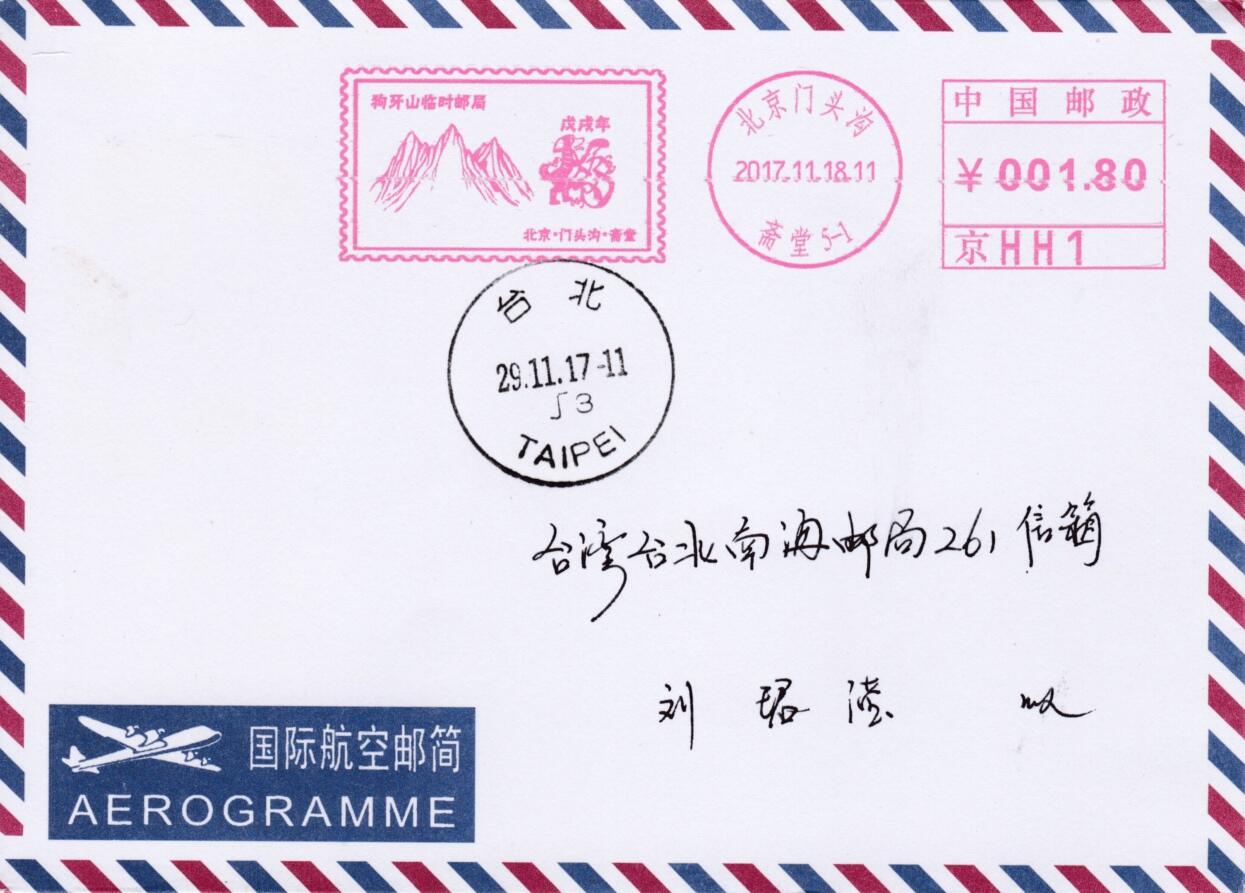 狗牙山临时邮局
戊戌年
北京·门头沟·斋堂
北京门头沟
2017.11.18.11
斋堂 5-1
中国邮政
¥001.80
京HH1
台北
29.11.17-11
J3
TAIPEI
台湾台北南海邮局261信箱
刘 珺 滢 收
国际航空邮简
AEROGRAMME